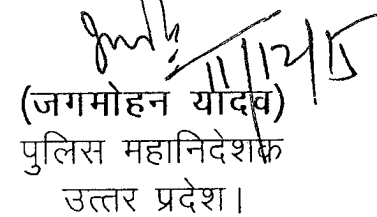 11/12/15
(जगमोहन यादव)
पुलिस महानिदेशक
उत्तर प्रदेश।